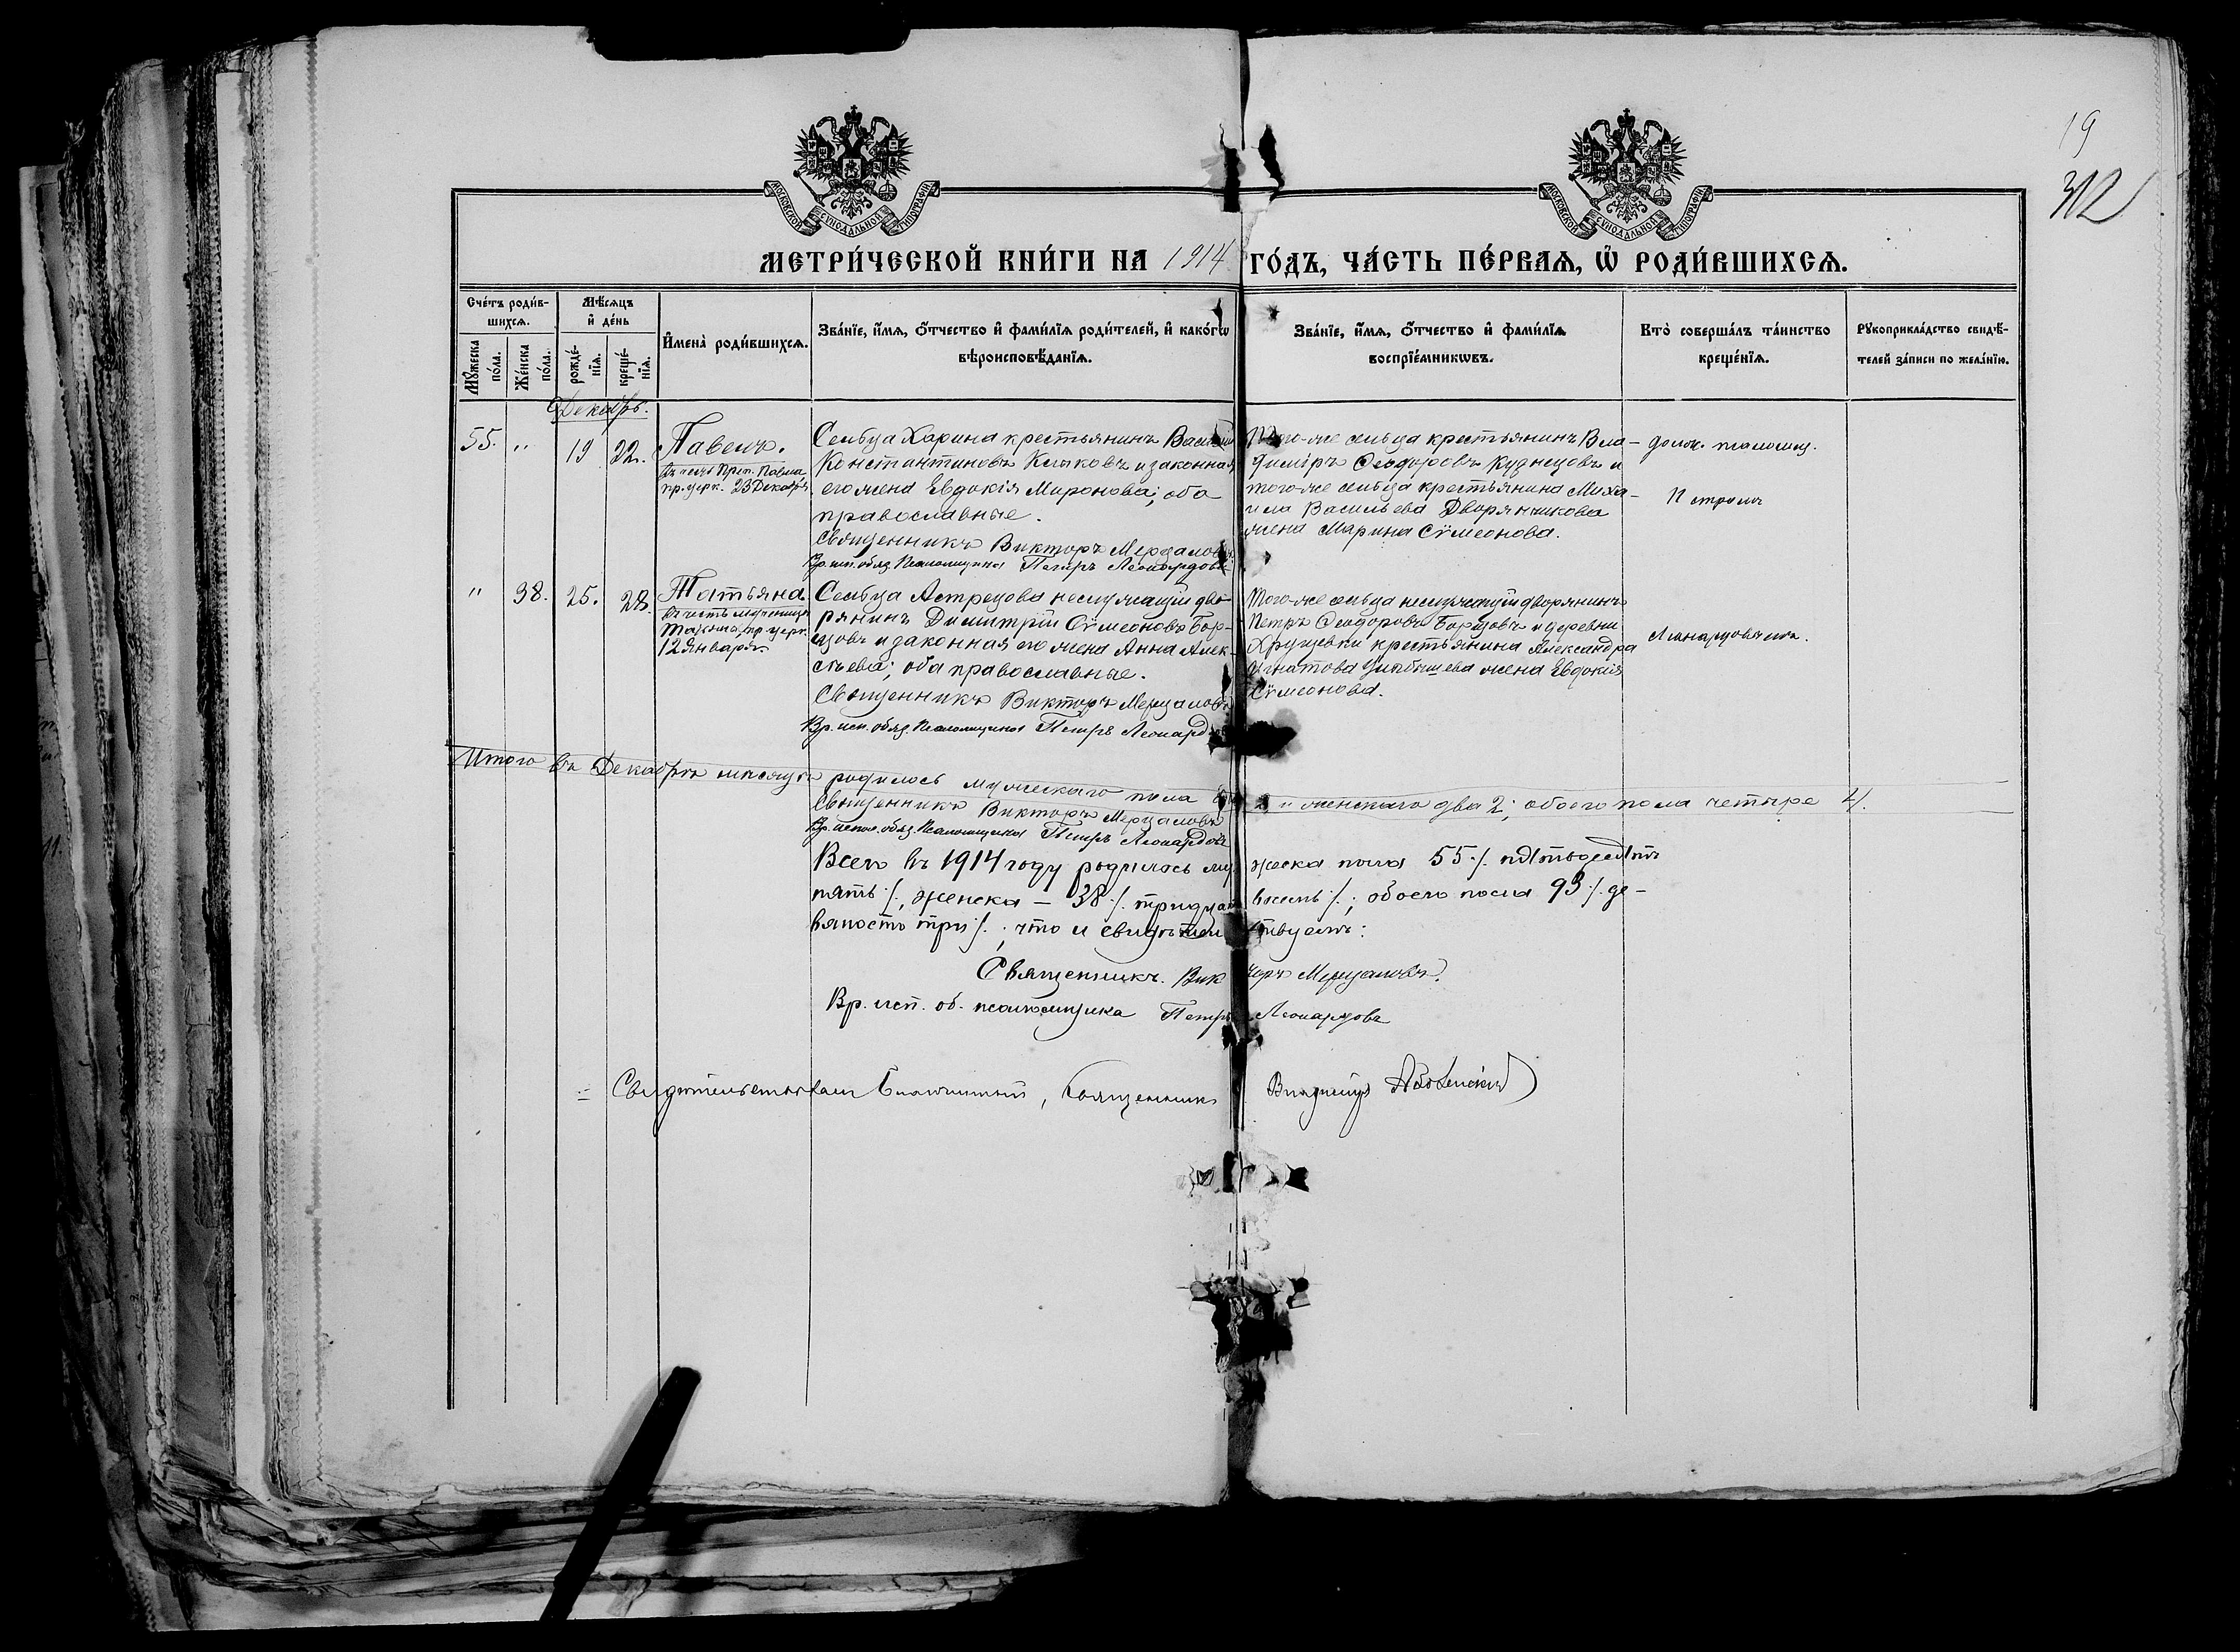 19
312
МОСКОВСКОЙ СѴНОДАЛЬНОЙ ТИПОГРАФІИ
МОСКОВСКОЙ СѴНОДАЛЬНОЙ ТИПОГРАФІИ
МЕТРИ́ЧЕСКОЙ КНИ́ГИ НА 1914 ГО́ДЪ, ЧА́СТЬ ПЕ́РВАѦ, Ѿ РОДИ́ВШИХСѦ.
Сче́тъ роди́в-
шихсѧ.
Мѣ́сѧцъ
и҆ де́нь
Мꙋ́жеска по́ла.
Же́нска по́ла.
рожде́-
нїѧ.
креще́-
нїѧ.
И҆мена̀ роди́вшихсѧ.
Зва́нїе, и҆́мѧ, ѻ҆́тчество и҆ фами́лїѧ роди́телей, и҆ како́гѡ
вѣроисповѣ́данїѧ.
Зва́нїе, и҆́мѧ, ѻ҆́тчество и҆ фами́лїѧ
воспрїе́мникѡвъ.
Кто̀ соверша́лъ та́инство
креще́нїѧ.
Рꙋкоприкла́дство свидѣ́-
телей за́писи по жела́нїю.
Декабрь.
55.
"
19
22.
Павелъ.
въ честь Преп. Павла
пр. церк. 23 Декабря
Сельца Харина крестьянинъ Василий
Константиновъ Клыковъ и законная
его жена Евдокія Миронова; оба
православные.
Священникъ Викторъ Мерцаловъ
Вр. исп. обяз. Псаломщика Петръ Леонардовъ
Того-же сельца крестьянинъ Вла-
диміръ Ѳеодоровъ Кузнецовъ и
того-же сельца крестьянина Миха-
ила Васильева Дворянчикова
жена Марина Сѵмеонова.
"
38.
25.
28.
Татьяна.
въ честь мученицы
Татьяны, пр. церк.
12 Января.
Сельца Астрецова неслужащій дво-
рянинъ Димитрій Сѵмеоновъ Бор-
цовъ и законная его жена Анна Алек-
сѣева; оба православные.
Священникъ Викторъ Мерцаловъ
Вр. исп. обяз. Псаломщика Петръ Леонард
Того-же сельца неслужащій дворянинъ
Петръ Ѳеодоровъ Борцовъ и деревни
Хрущовки крестьянина Александра
Игнатова жена Евдокія
Сѵмеонова.
Итого въ Декабрѣ мѣсяцѣ родилось мужескаго пола 2 и женскаго два 2; обоего пола четыре 4.
Священникъ Викторъ Мерцаловъ
Вр. испол. обяз. Псаломщика Петръ Леонардовъ
Всего въ 1914 году родилось мужеска пола 55 ./. пятьдесятъ
пять ./., женска – 38 ./. тридцать восемь ./.; обоего пола 93 ./. де-
вяносто три ./.; что и свидѣтельствуемъ:
Священникъ Викторъ Мерцаловъ.
Вр. исп. об. псаломщика Петръ Леонардовъ
Свидѣтельствовалъ Благочинный, Священникъ Владиміръ